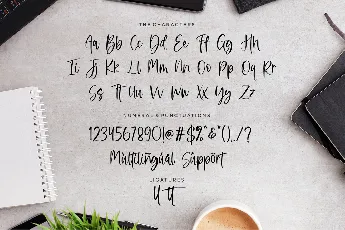 THE CHARACTERS
Aa Bb Cc Dd Ee Ff Gg Hh
Ii Jj Kk Ll Mm Nn Oo Pp Qq Rr
Ss Tt Uu Vv Ww Xx Yy Zz
NUMERAL & PUNCTUATIONS
1234567890!@#$%^&*(),./?
Multilingual Support
LIGATURES
tt